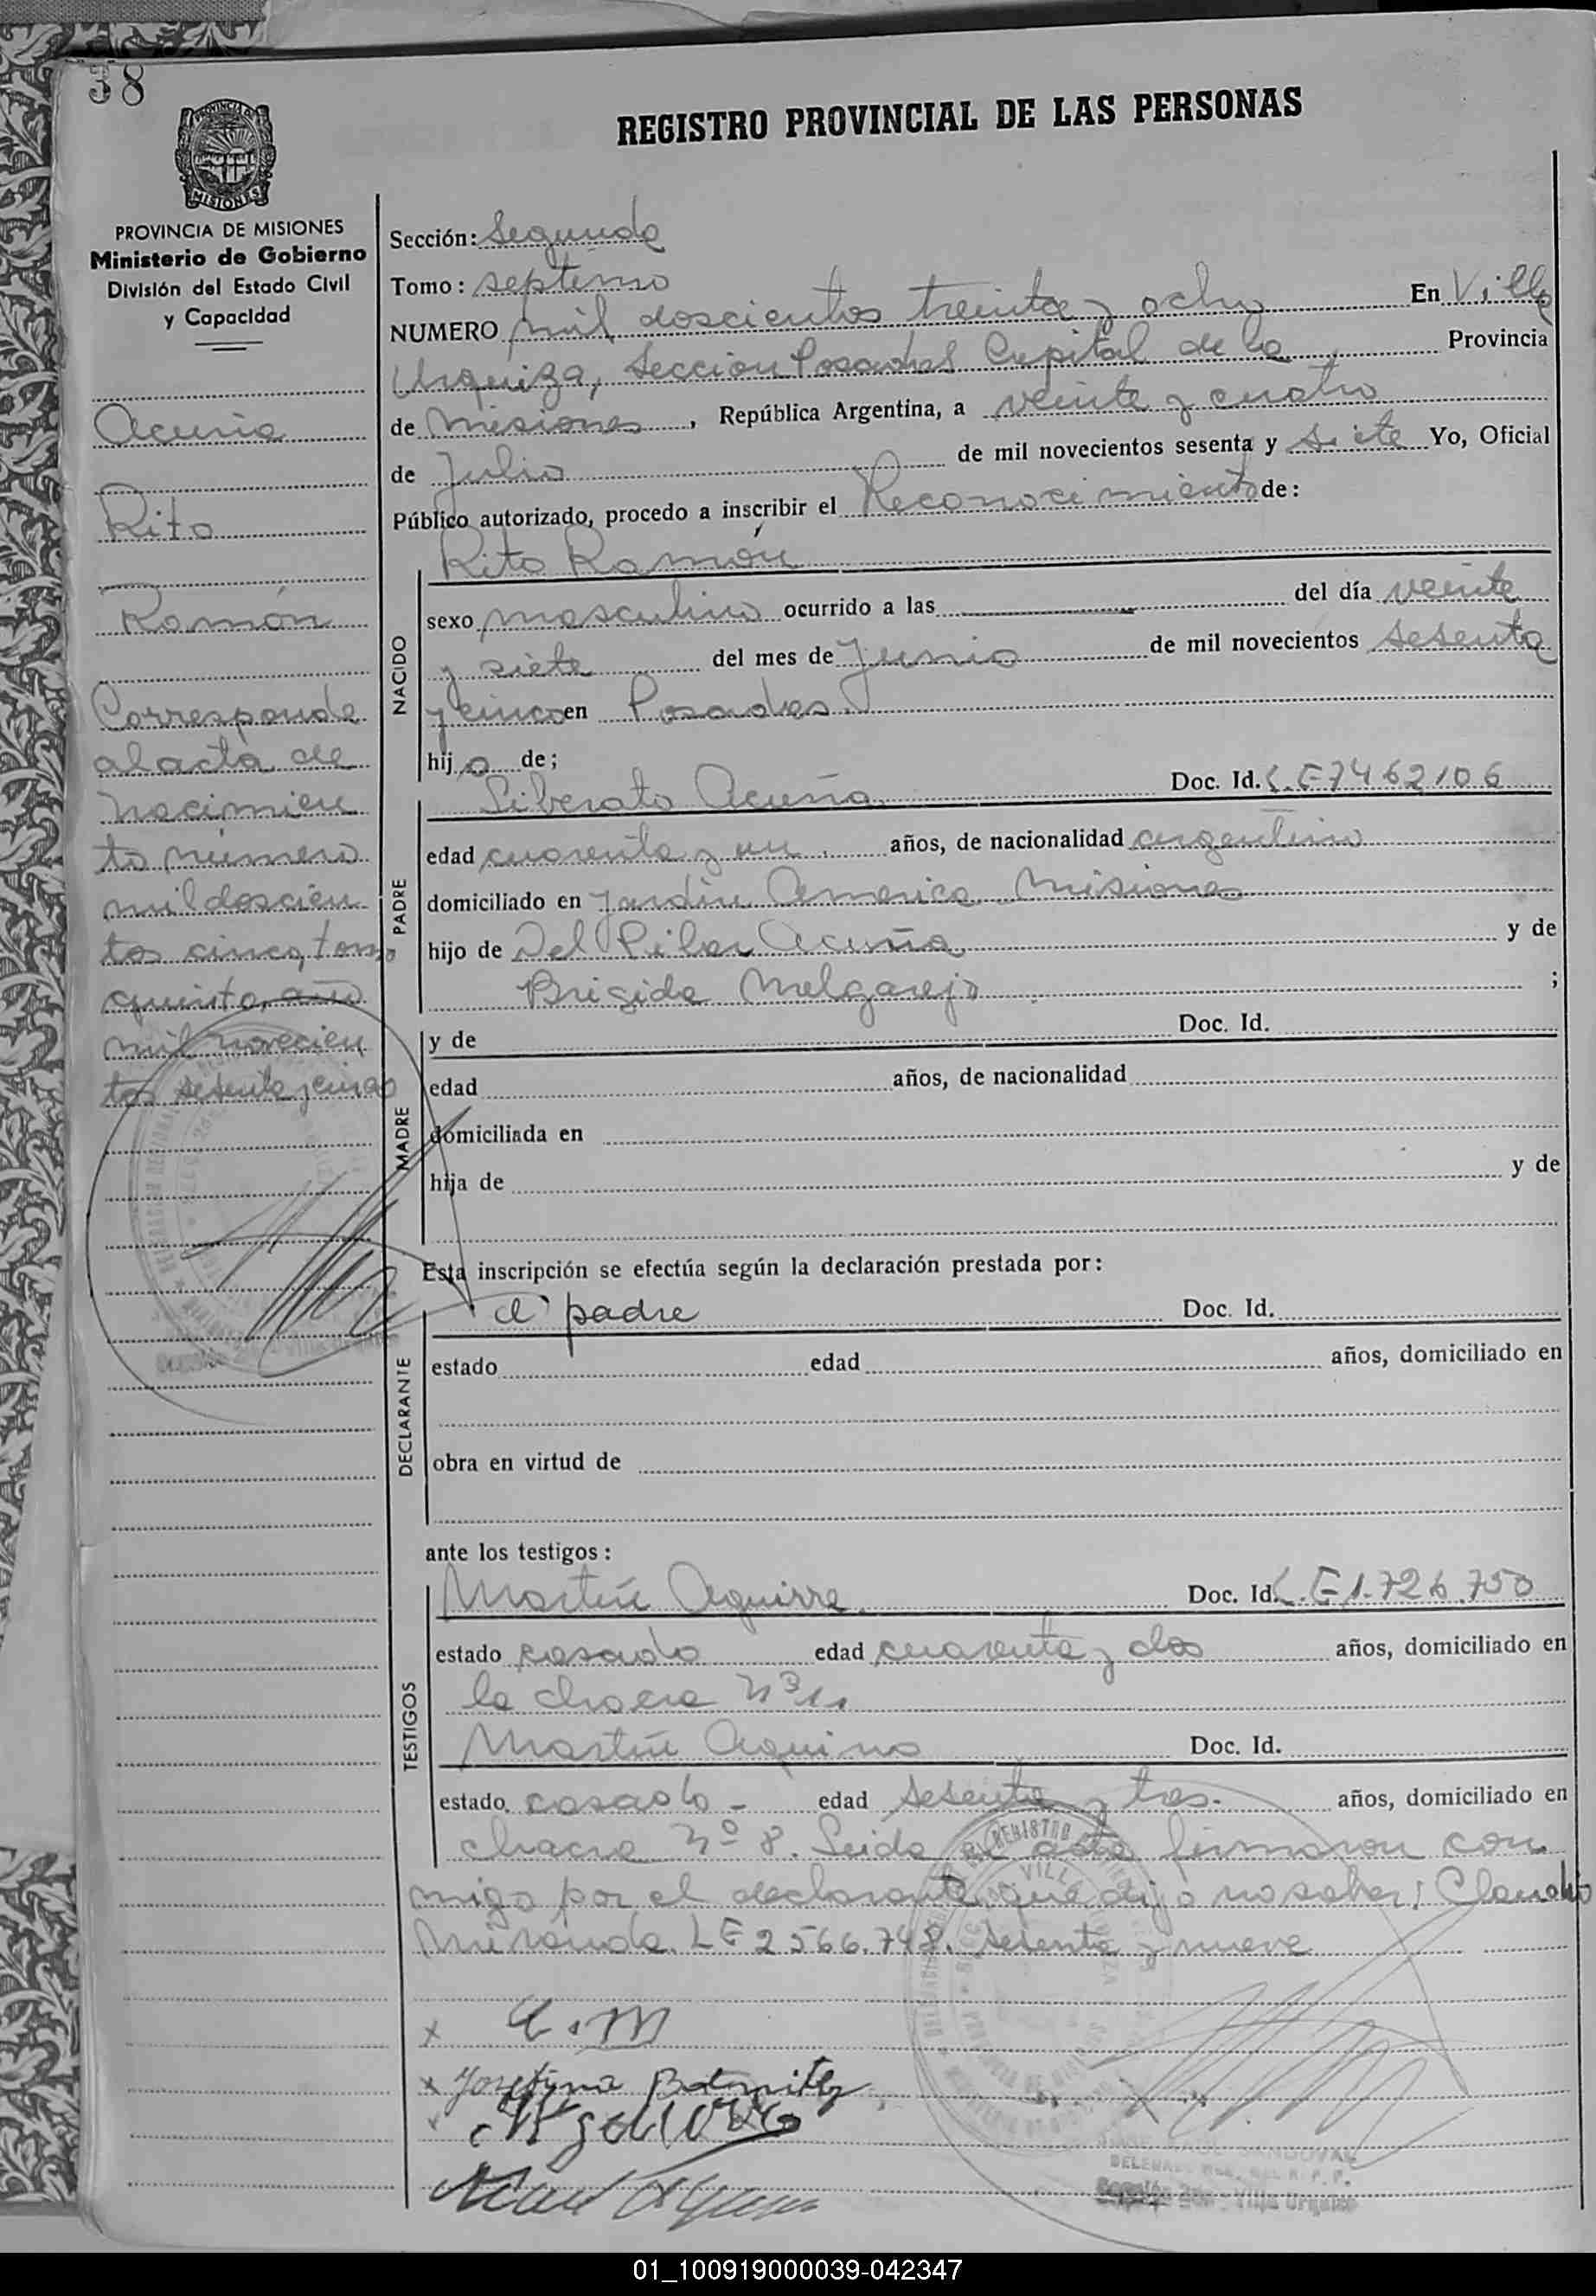 38
PROVINCIA DE MISIONES
Ministerio de Gobierno
División del Estado Civil
y Capacidad
Acuña
Rito
Ramón
Corresponde
al acta de
nacimien
to número
mil doscien
tos cinco, tomo
quinto, año
mil novecien
tos sesenta y cinco
REGISTRO PROVINCIAL DE LAS PERSONAS
Sección: Segunda
Tomo: septimo
NUMERO mil doscientos treinta y ocho En Villa
Urquiza, Sección Posadas Capital de la Provincia
de Misiones, República Argentina, a veinte y cuatro
de Julio de mil novecientos sesenta y siete Yo, Oficial
Público autorizado, procedo a inscribir el Reconocimiento de:
Rito Ramón
NACIDO
sexo masculino ocurrido a las del día veinte
y siete del mes de Junio de mil novecientos sesenta
y cinco en Posadas.
hijo de;
PADRE
Liberato Acuña Doc. Id. L.E 7462106
edad cuarenta y un años, de nacionalidad argentino
domiciliado en Jardin America Misiones
hijo de Del Pilar Acuña y de
Brigida Melgarejo ;
MADRE
y de Doc. Id.
edad años, de nacionalidad
domiciliada en
hija de y de
Esta inscripción se efectúa según la declaración prestada por:
DECLARANTE
el padre Doc. Id.
estado edad años, domiciliado en
obra en virtud de
ante los testigos:
TESTIGOS
Martín Aguirre Doc. Id. L.E 1.726.750
estado casado edad cuarenta y dos años, domiciliado en
la chacra Nº 11
Martín Aquino Doc. Id.
estado casado - edad sesenta y tres. años, domiciliado en
chacra Nº 8. Leida el acta firmaron con
migo por el declarante que dijo no saber: Claudio
Miranda. LE 2566.748. sesenta y nueve
x C.M
x
DEL REGISTRO
VILLA URQUIZA
Sección 2da. Villa Urquiza
01_100919000039-042347